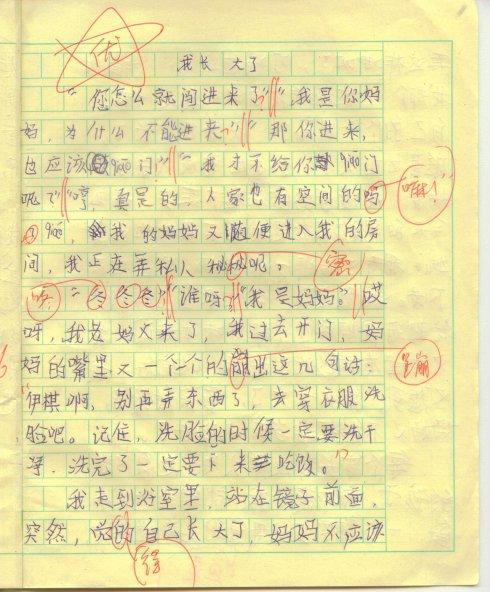 优
我长大了
"您怎么就闯进来了?""我是你妈
妈,为什么不能进来?""那你进来,
也应该qiao门!""我才不给你qiao门
呢!""哼,真是的,人家也有空间的吗
嘛!"
qiao,我的妈妈又随便进入我的房
间,我正在弄私人秘秘呢。
密
咚 "冬冬冬""谁呀?""我是妈妈。"哎
呀,我老妈又来了,我过去开门,妈
妈的嘴里又一个个的崩出这几句话:
蹦
"伊棋啊,别再弄东西了,去穿衣服洗
脸吧。记住,洗脸的时候一定要洗干
净,洗完了一定要下来吃饭。"
我走到浴室里,站在镜子前面,
突然,觉的自己长大了,妈妈不应该
得